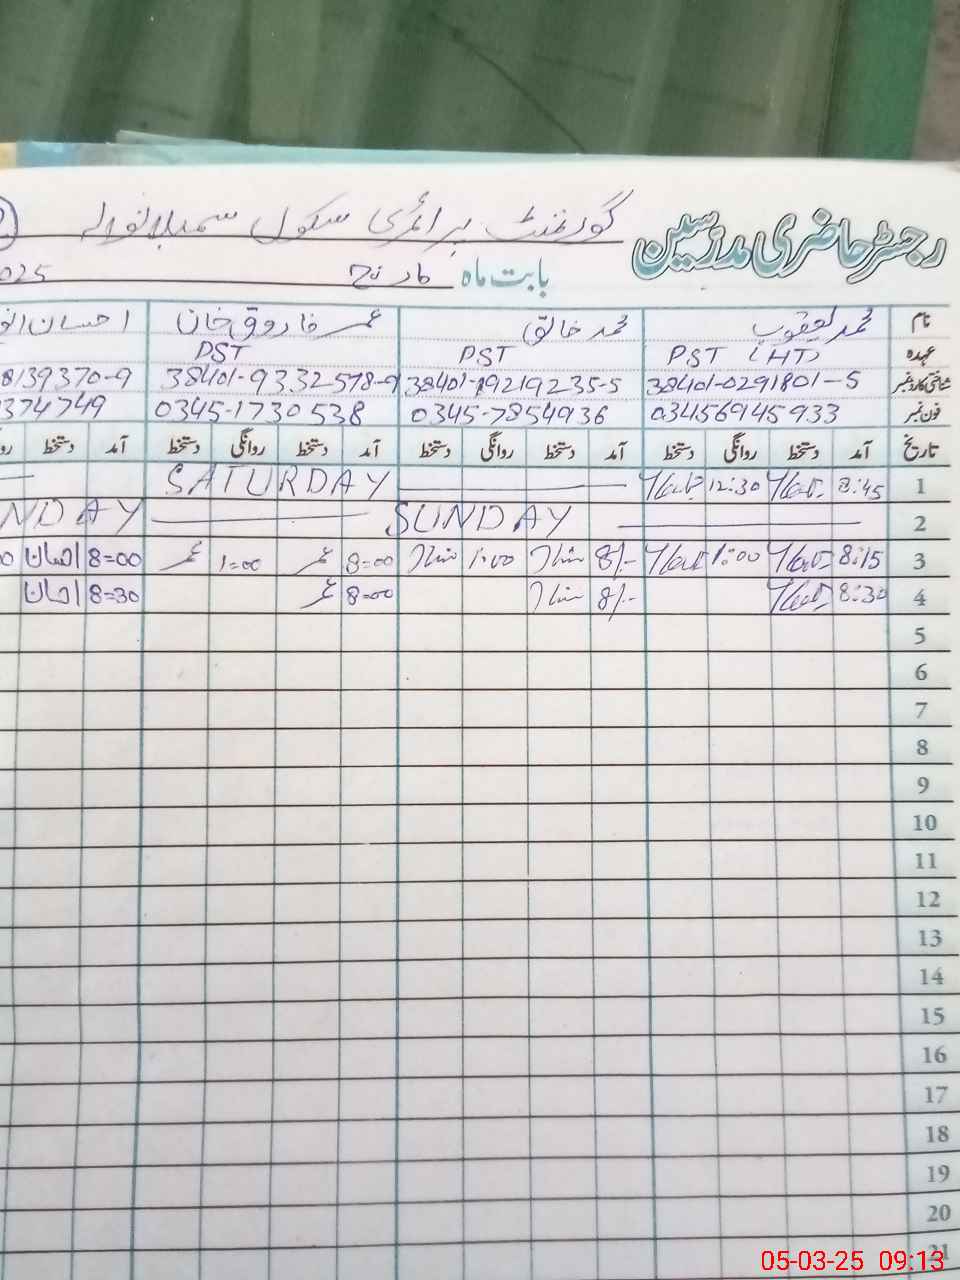 رجسٹر حاضری مدرسین گورنمنٹ پرائمری سکول سمبلانوالہ
بابت ماہ مارچ 2025
نام محمد یعقوب محمد خالق عمر فاروق خان احسان
عہدہ PST (HT) PST PST
شناختی کارڈ نمبر 38401-0291801-5 38401-1921923-5 38401-9332578-9 8139370-9
فون نمبر 03456914593 0345-7854936 0345-1730538 374749
تاریخ آمد دستخط روانگی دستخط آمد دستخط روانگی دستخط آمد دستخط روانگی دستخط آمد دستخط
1 8:45 12:30 SATURDAY
2 SUNDAY SUNDAY
3 8:15 1:00 8/- 1:00 8=00 عمر 1=00 عمر 8=00 احسان
4 8:30 8/- 8=00 عمر 8=30 احسان
5
6
7
8
9
10
11
12
13
14
15
16
17
18
19
20
21
05-03-25 09:13